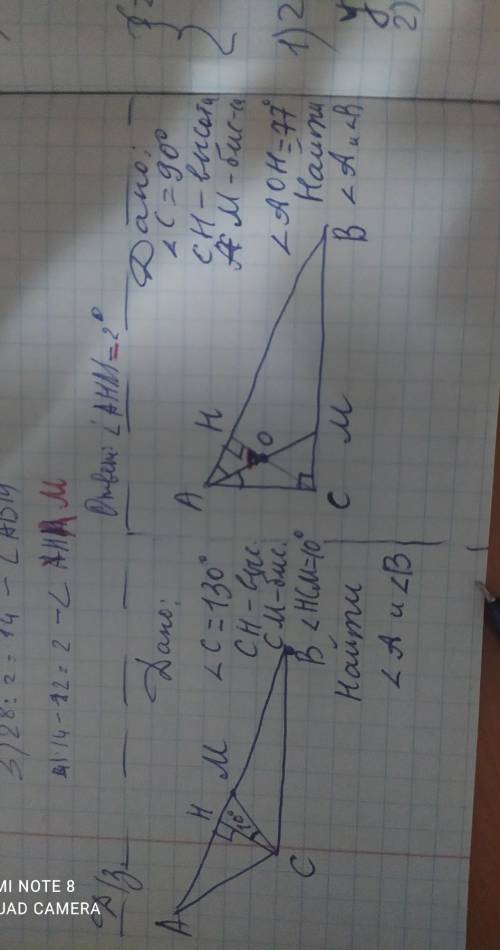 3) 28 : 2 = 14 - ∠ABM
4) 14 - 12 = 2 - ∠AHM
Ответ: ∠AHM = 2°
Д/З
Дано:
∠C = 130°
CH - выс.
CM - бис.
∠HCM = 10°
Найти
∠A и ∠B
A
H
M
B
C
10°
Дано:
∠C = 90°
CH - высота
AM - бис-са
∠AOH = 77°
Найти
∠A и ∠B
A
H
O
C
M
B
1) 2
2)
MI NOTE 8
QUAD CAMERA